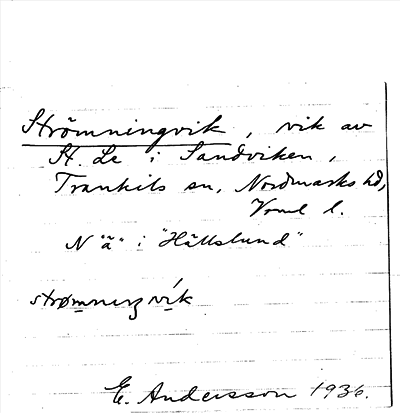 Strömningvik, vik av
St. Le i Sandviken,
Trankils sn, Nordmarks hd,
Vrml l.
N "ä" i "Hällslund"
strømnıŋ vík
E. Andersson 1936.